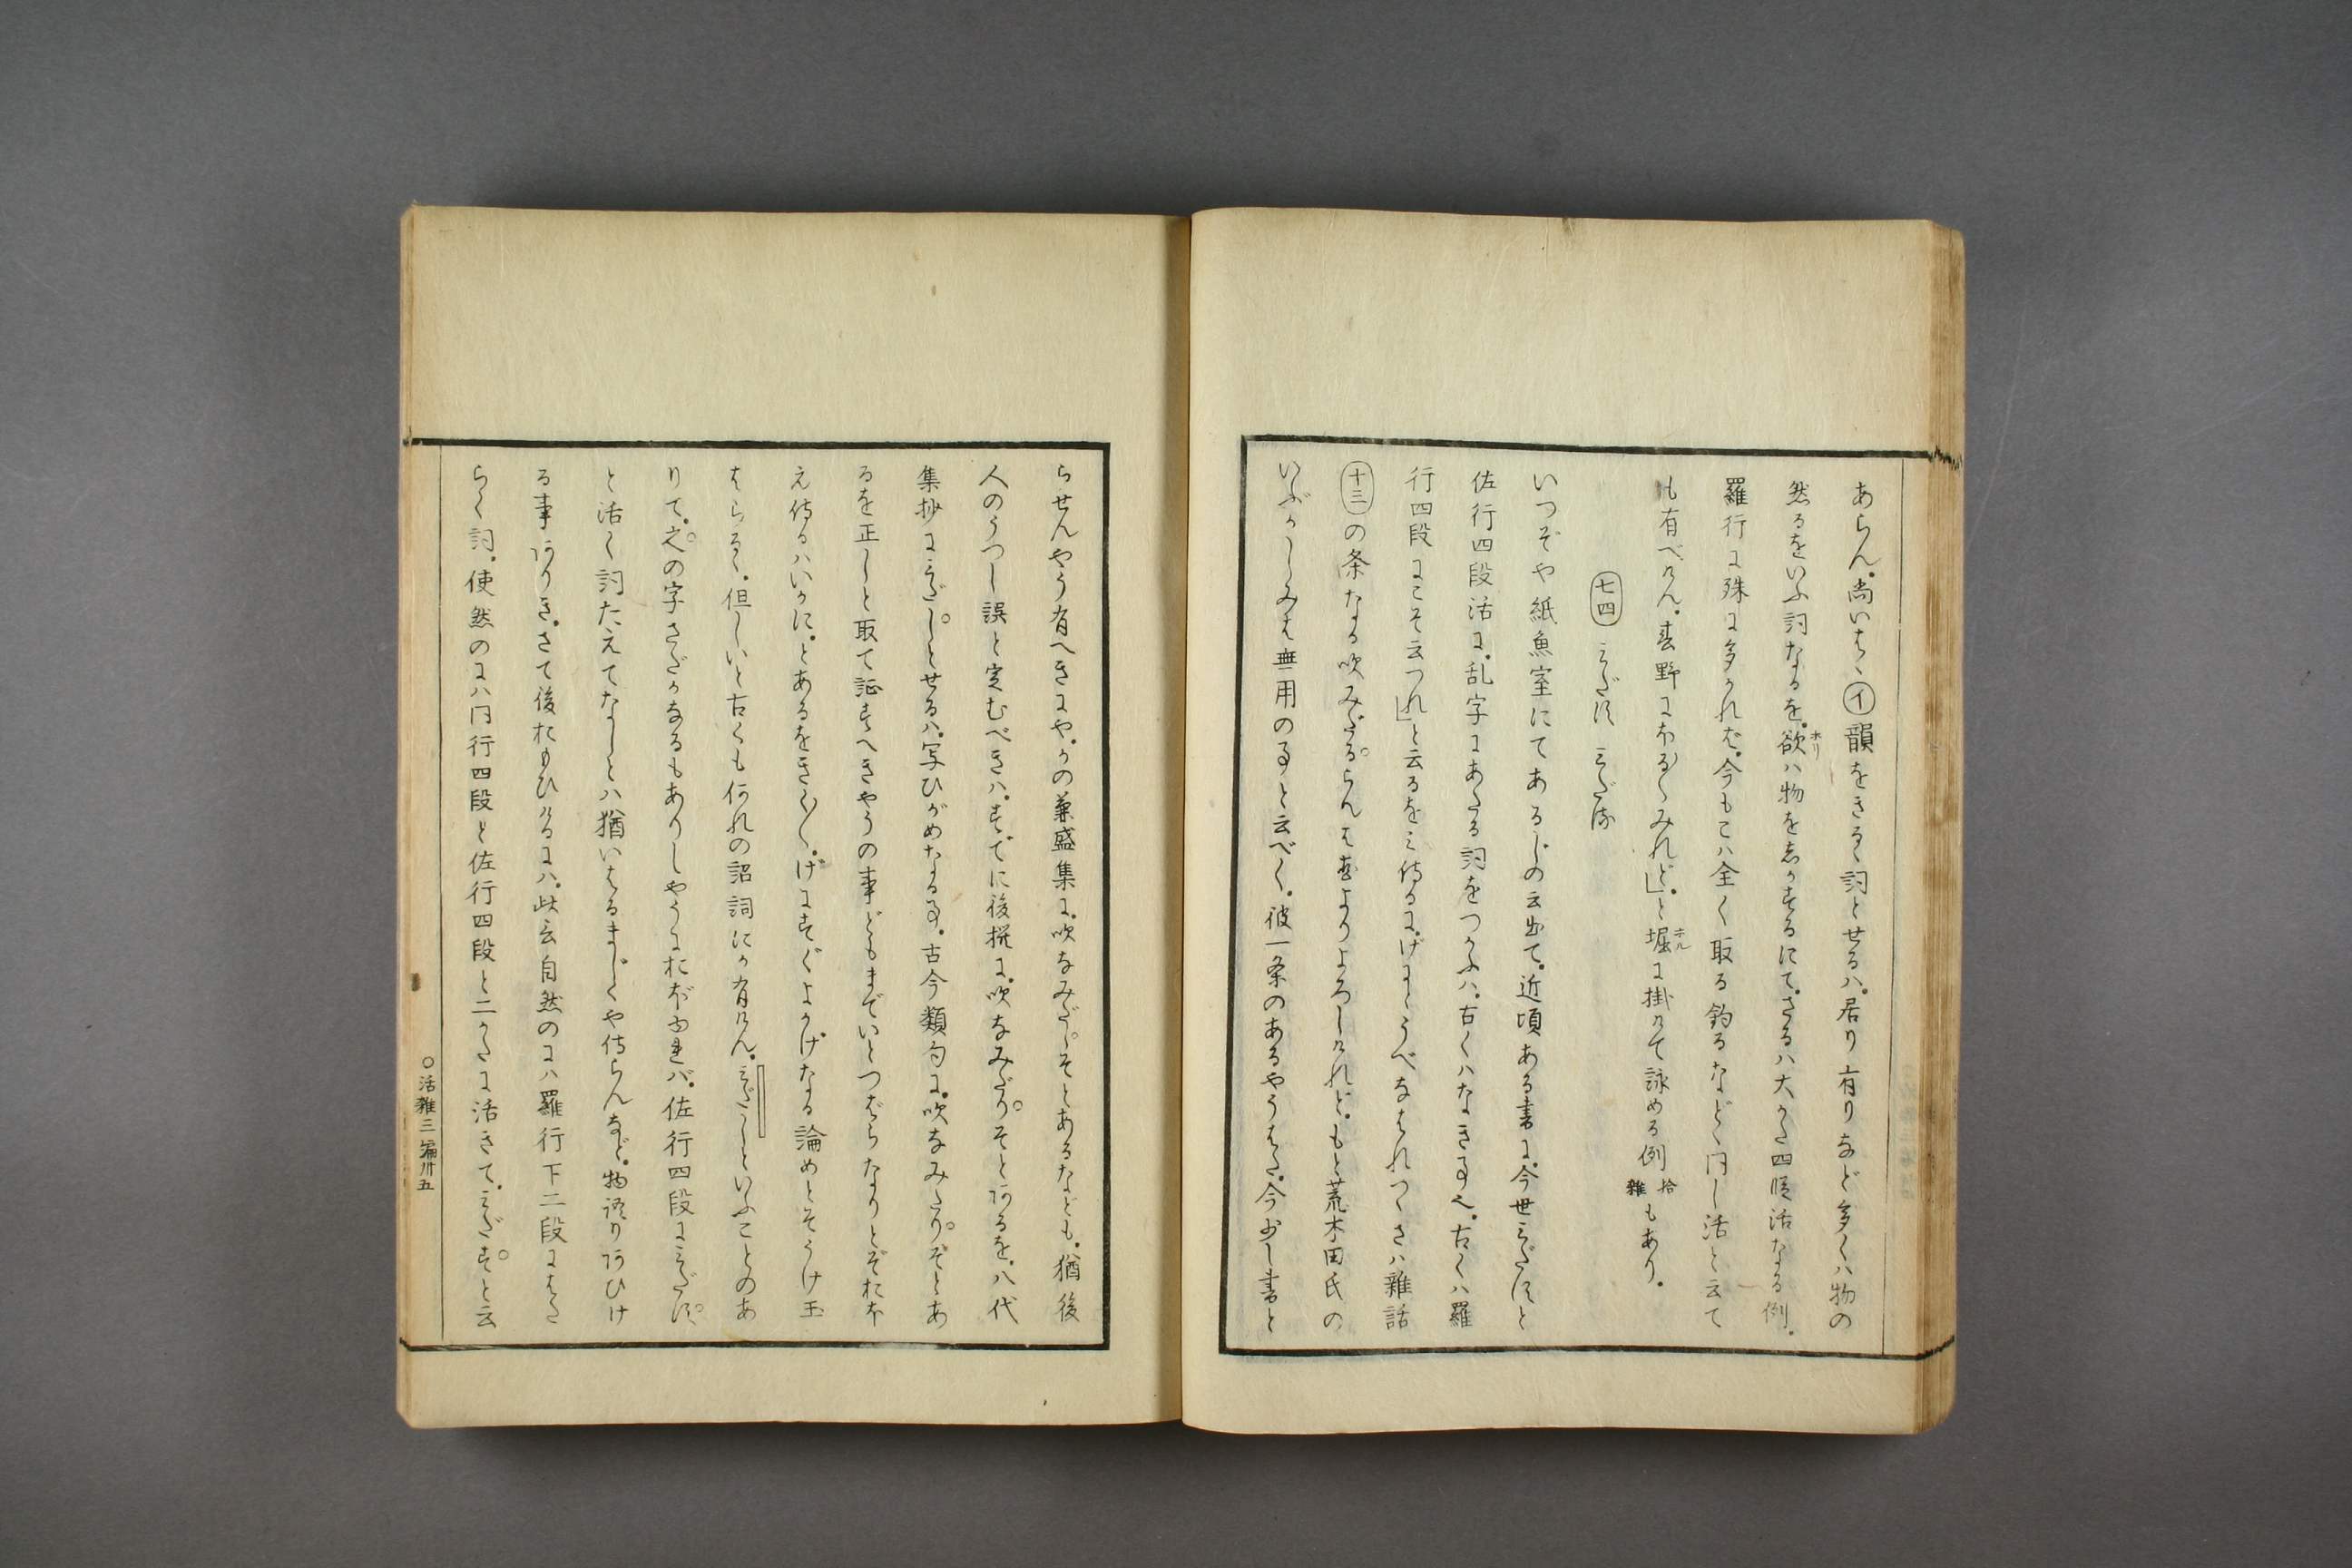 あらん。尚いはゝ、イ韻をきるゝ詞とせるハ。居り有りなど多くハ物の
然るをいふ詞なるを。欲ホリハ物を志か乎るにて。さるハ大かた四段活なる例。
羅行に殊に多かれば。今もこハ全く取る釣るなどゝ同じ活と云て
も有べけん。春野にほるゝみれど」と堀ホルに掛けて詠める例拾雑もあり。
七四 みだす みだる
いつぞや紙魚室にてあるじの云出て。近頃ある書に。今世みだすと
佐行四段活に。乱字にあたる詞をつかふハ。古くハなき事也。古くハ羅
行四段にこそ云つれ」と云るをミ侍るに。げにうべなはれつ。さハ雑話
十三の条なる吹みだるらんは悪よりよろしけれど。もと荒木田氏の
いぶかしみは無用の事と云べく。彼一条のあるやうはた。今少し書と
らせんやう有へきにや。かの兼盛集に。吹なみだしそとあるなども。猶後
人のうつし誤と定むべきハ。すでに後撰に。吹なみだりそとあるを。八代
集抄にみだしとせるハ。写ひがめなる事。古今類句に。吹なみたりぞとあ
るを正しと取て証すへきやうの事どもまでいとつばらなりとぞおぼ
え侍るハいかに。とあるをきゝ〳〵。げにすぐよかげなる論めとそうけ玉
はらるゝ。但しいと古くも何れの詔詞にか有けん。みだしといふことのあ
りて。之の字さだかなるもありしやうにおぼゆれバ。佐行四段にみだす
と活く詞たえてなしとハ猶いはるまじくや侍らんなど。物語りあひけ
る事ありき。さて後おもひけるにハ。此云自然のにハ羅行下二段にはた
らく詞。使然のにハ同行四段と佐行四段と二かたに活きて。みだすと云
○活雑三編卅五